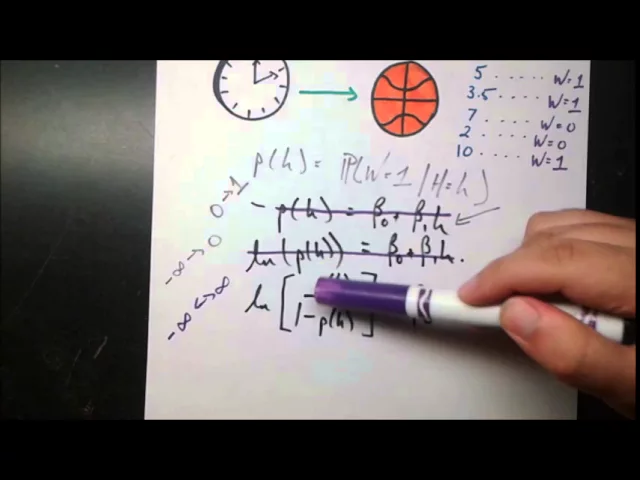 5 ..... W=1
3.5 .... W=1
7 ..... W=0
2 ..... W=0
10 .... W=1
p(h) = P(W=1 | H=h)
0 → 1 - p(h) = β₀ + β₁h
-∞ → 0 ln(p(h)) = β₀ + β₁h.
-∞ ↔ ∞ ln [ 1-p(h) ]